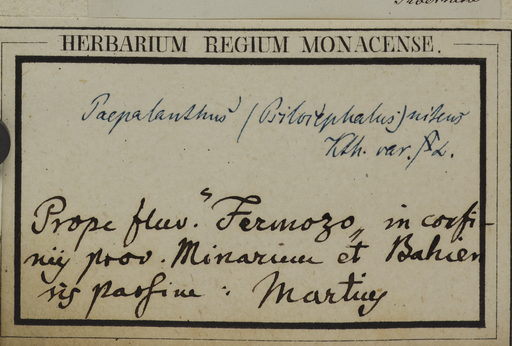 HERBARIUM REGIUM MONACENSE.
Paepalanthus (Psilocephalus) nitens
Kth. var. β L.
Prope fluv. "Formozo„ in confi-
nij prov. Minarum et Bahien
sis passim : Martius